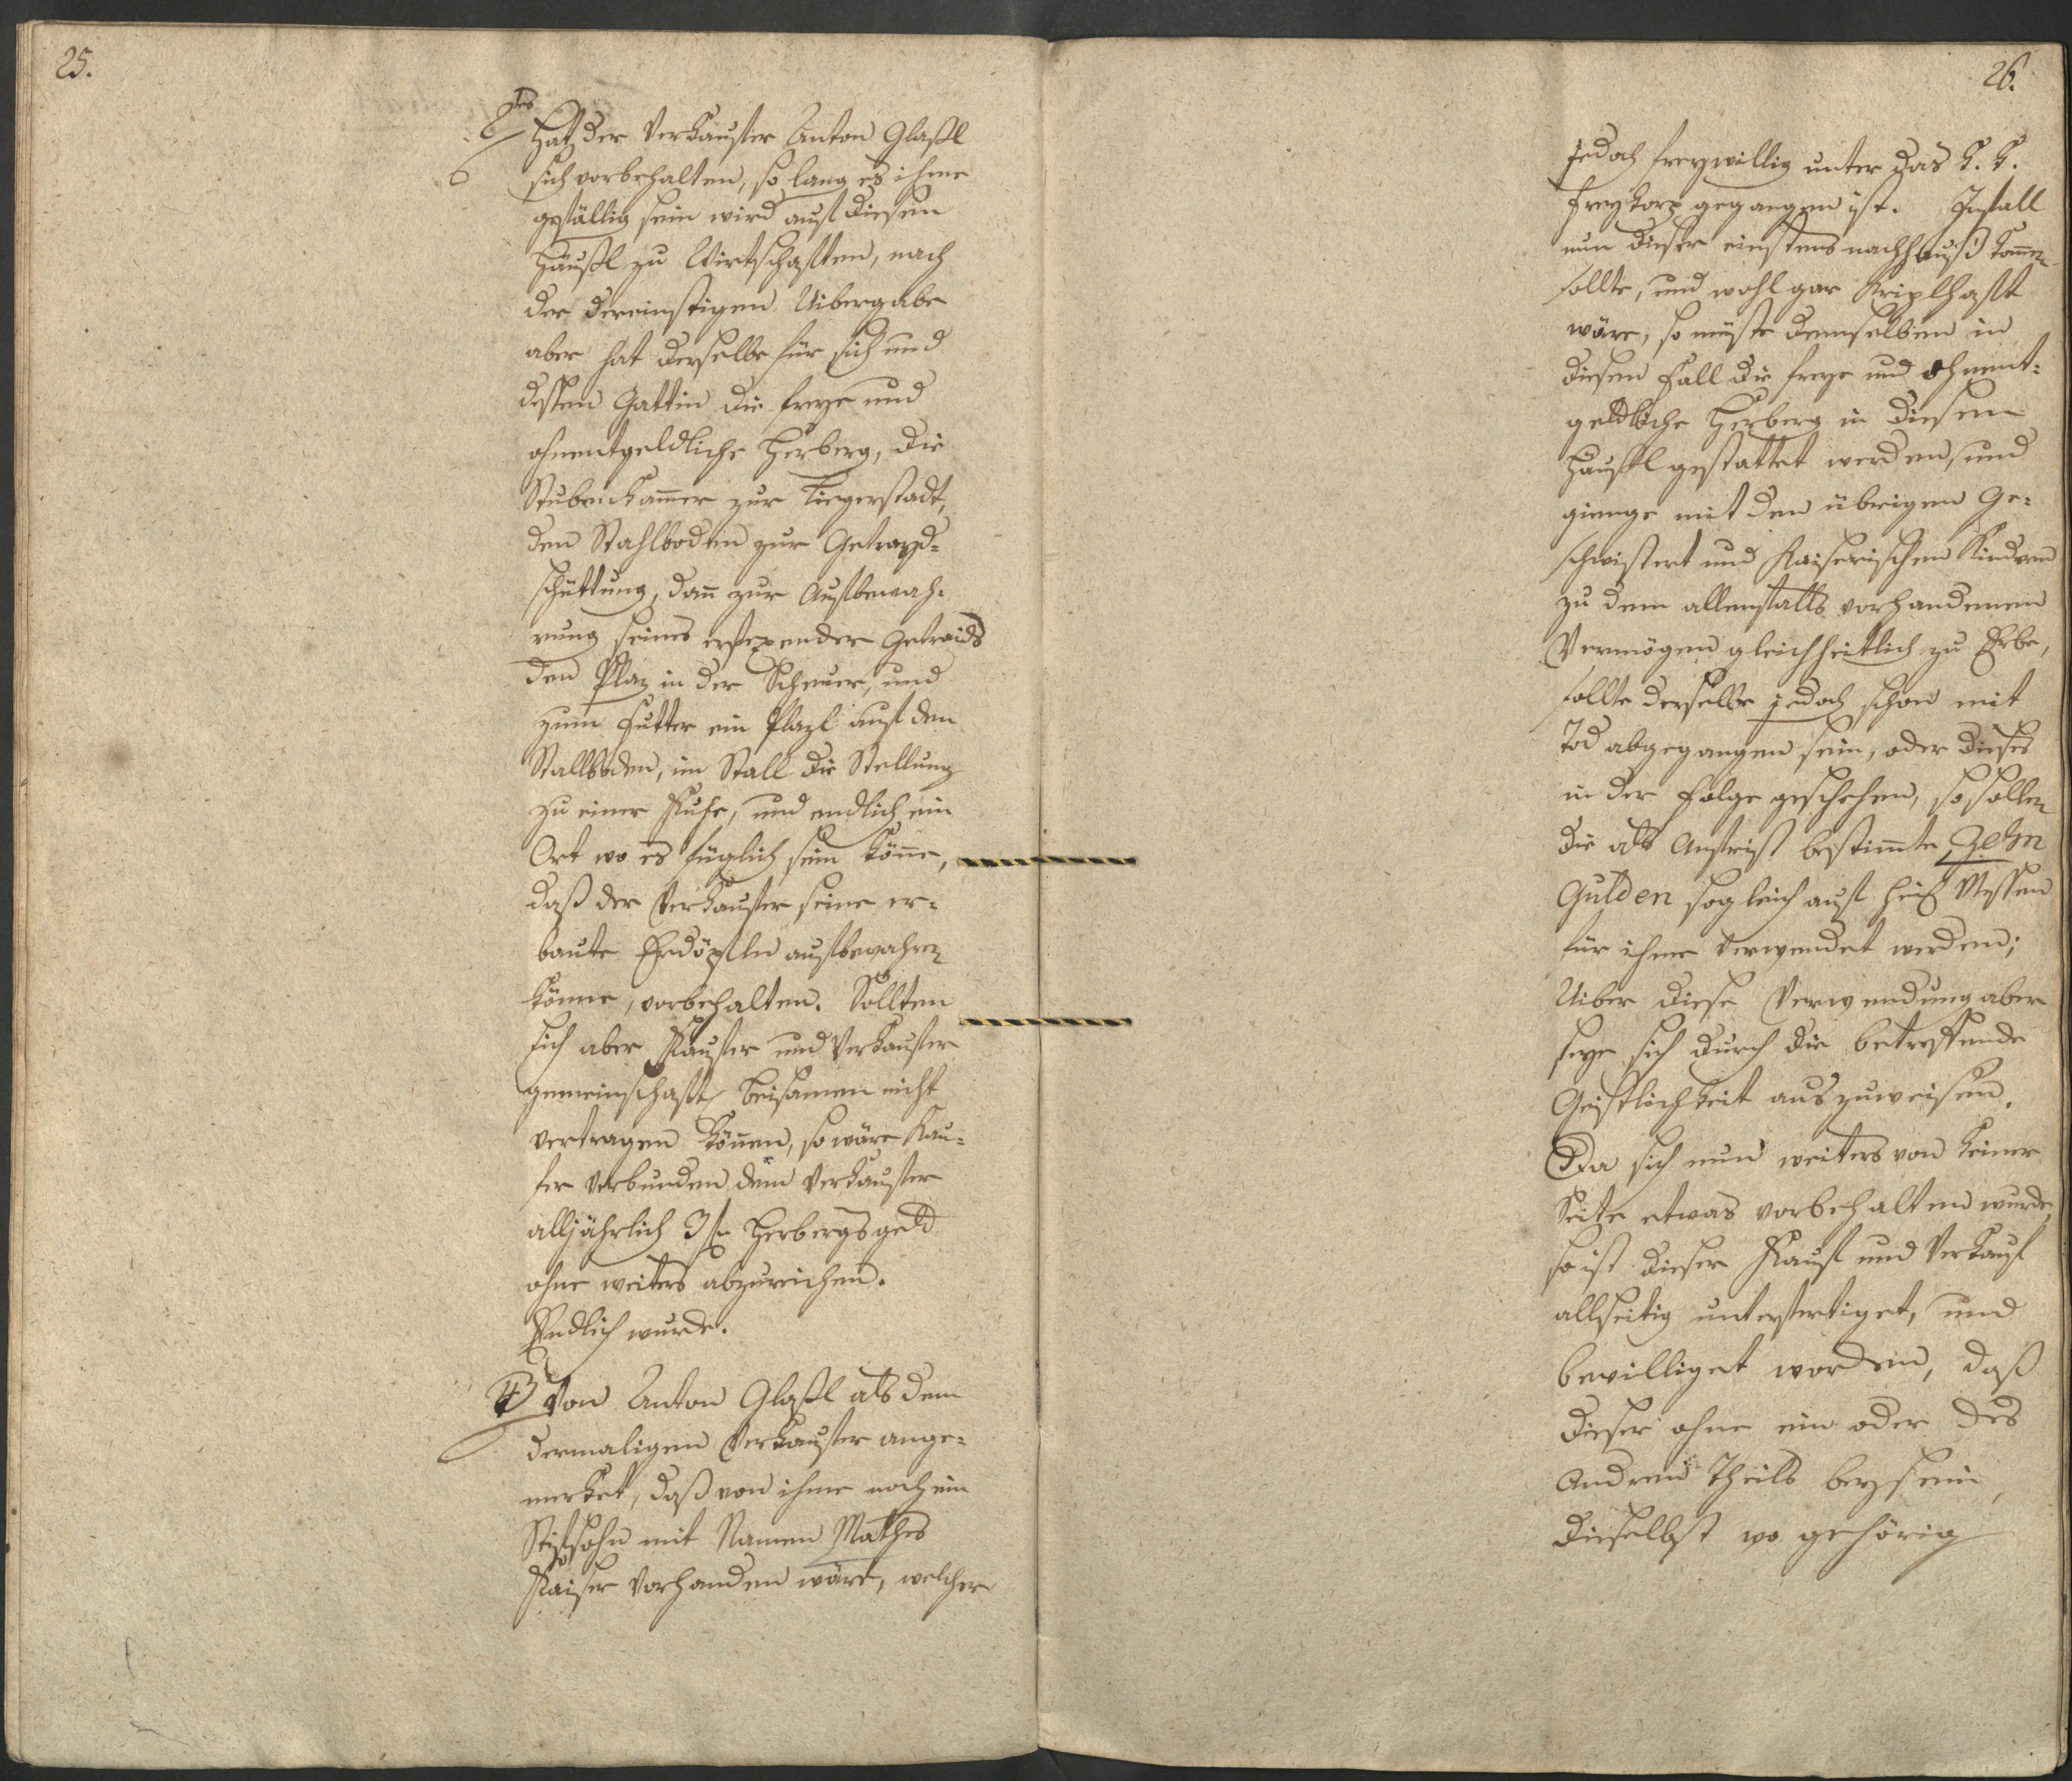 25.
Hat der Verkaufer Anton Glaßl
sich vorbehalten, so lang es ihme
gefällig sein wird auf diesen
Häußl zu Wirtschaften, nach
der dereinstigen Uibergabe
aber hat derselbe für sich und
dessen Gattin die freye und
ohnentgeldliche Herberg, die
Stubenkam̄er zur Liegerstadt,
den Stahlboden zur Getrayd-
schüttung, dan̄ zur Aufbewah-
rung seines Getraids
den Plaz in der Scheuer, und
zum Futter ein Plazl auf den
Stallboden, im Stall die Stellung
zu einer Kuhe, und endlich ein
Ort wo es füglich sein kön̄e,
daß der Verkaufer seine er-
baute Erdöpfln aufbewahren
könne, vorbehalten. Sollten
sich aber Kaufer und Verkaufer
gemeinschaftl beisamen nicht
vertragen kön̄en, so wäre Kau-
fer verbunden dem Verkaufer
alljährlich 3 f Herbergsgeld
ohne weiters abzureichen.
Endlich wurde.
Von Anton Glaßl als dem
dermaligen Verkaufer ange-
merket, daß von ihme noch ein
Stifsohn mit Namen Mathes
Kaiser vorhanden wäre, welcher
26.
jedoch freywillig unter das K. K.
Freykorp gegangen ist. Infall
nun dieser einstens nach Hauß kom̄en
sollte, und wohl gar Kriplhaft
wäre, so müste demselben in
diesen Fall die freye und ohnent-
geldliche Herberg in diesem
Häußl gestattet werden, und
gienge mit den übrigen Ge-
schwistert und Kaiserischen Kindern
zu dem allenfalls vorhandenen
Vermögen gleichheitlich zu Erbe,
sollte derselbe jedoch schon mit
Tod abgegangen sein, oder dieses
in der Folge geschehen, so sollen
die als bestim̄te Zehn
Gulden sogleich auf heil Messen
für ihme verwendet werden;
Uiber diese Verwendung aber
seye sich durch die betreffende
Geistlichkeit auszuweisen.
Da sich nun weiters von keiner
Seite etwas vorbehalten wurde,
so ist dieser Kauf und Verkauf
allseitig unterfertiget, und
bewilliget worden, daß
dieser ohne ein oder des
Andren Theils beysein,
dieselbst wo gehörig